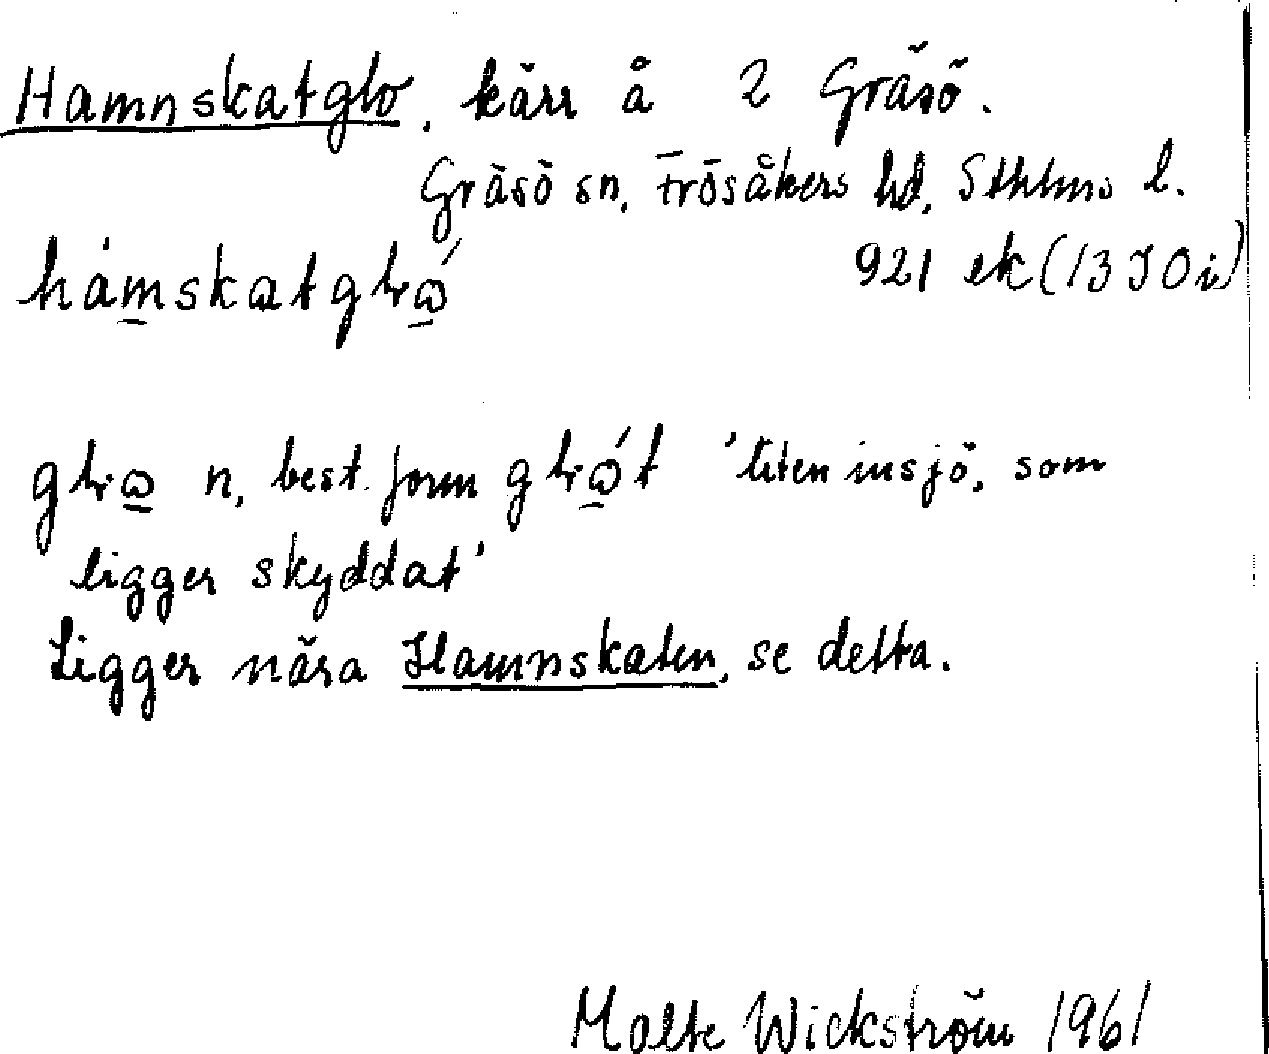 Hamnskatglo, kärr å 2 Gräsö.
Gräsö sn, Frösåkers hd, Sthlms l.
921 ek (13 I 0 i)
best. form
'liten insjö, som
ligger skyddat'
Ligger nära Hamnskaten, se detta.
Malte Wickström 1961